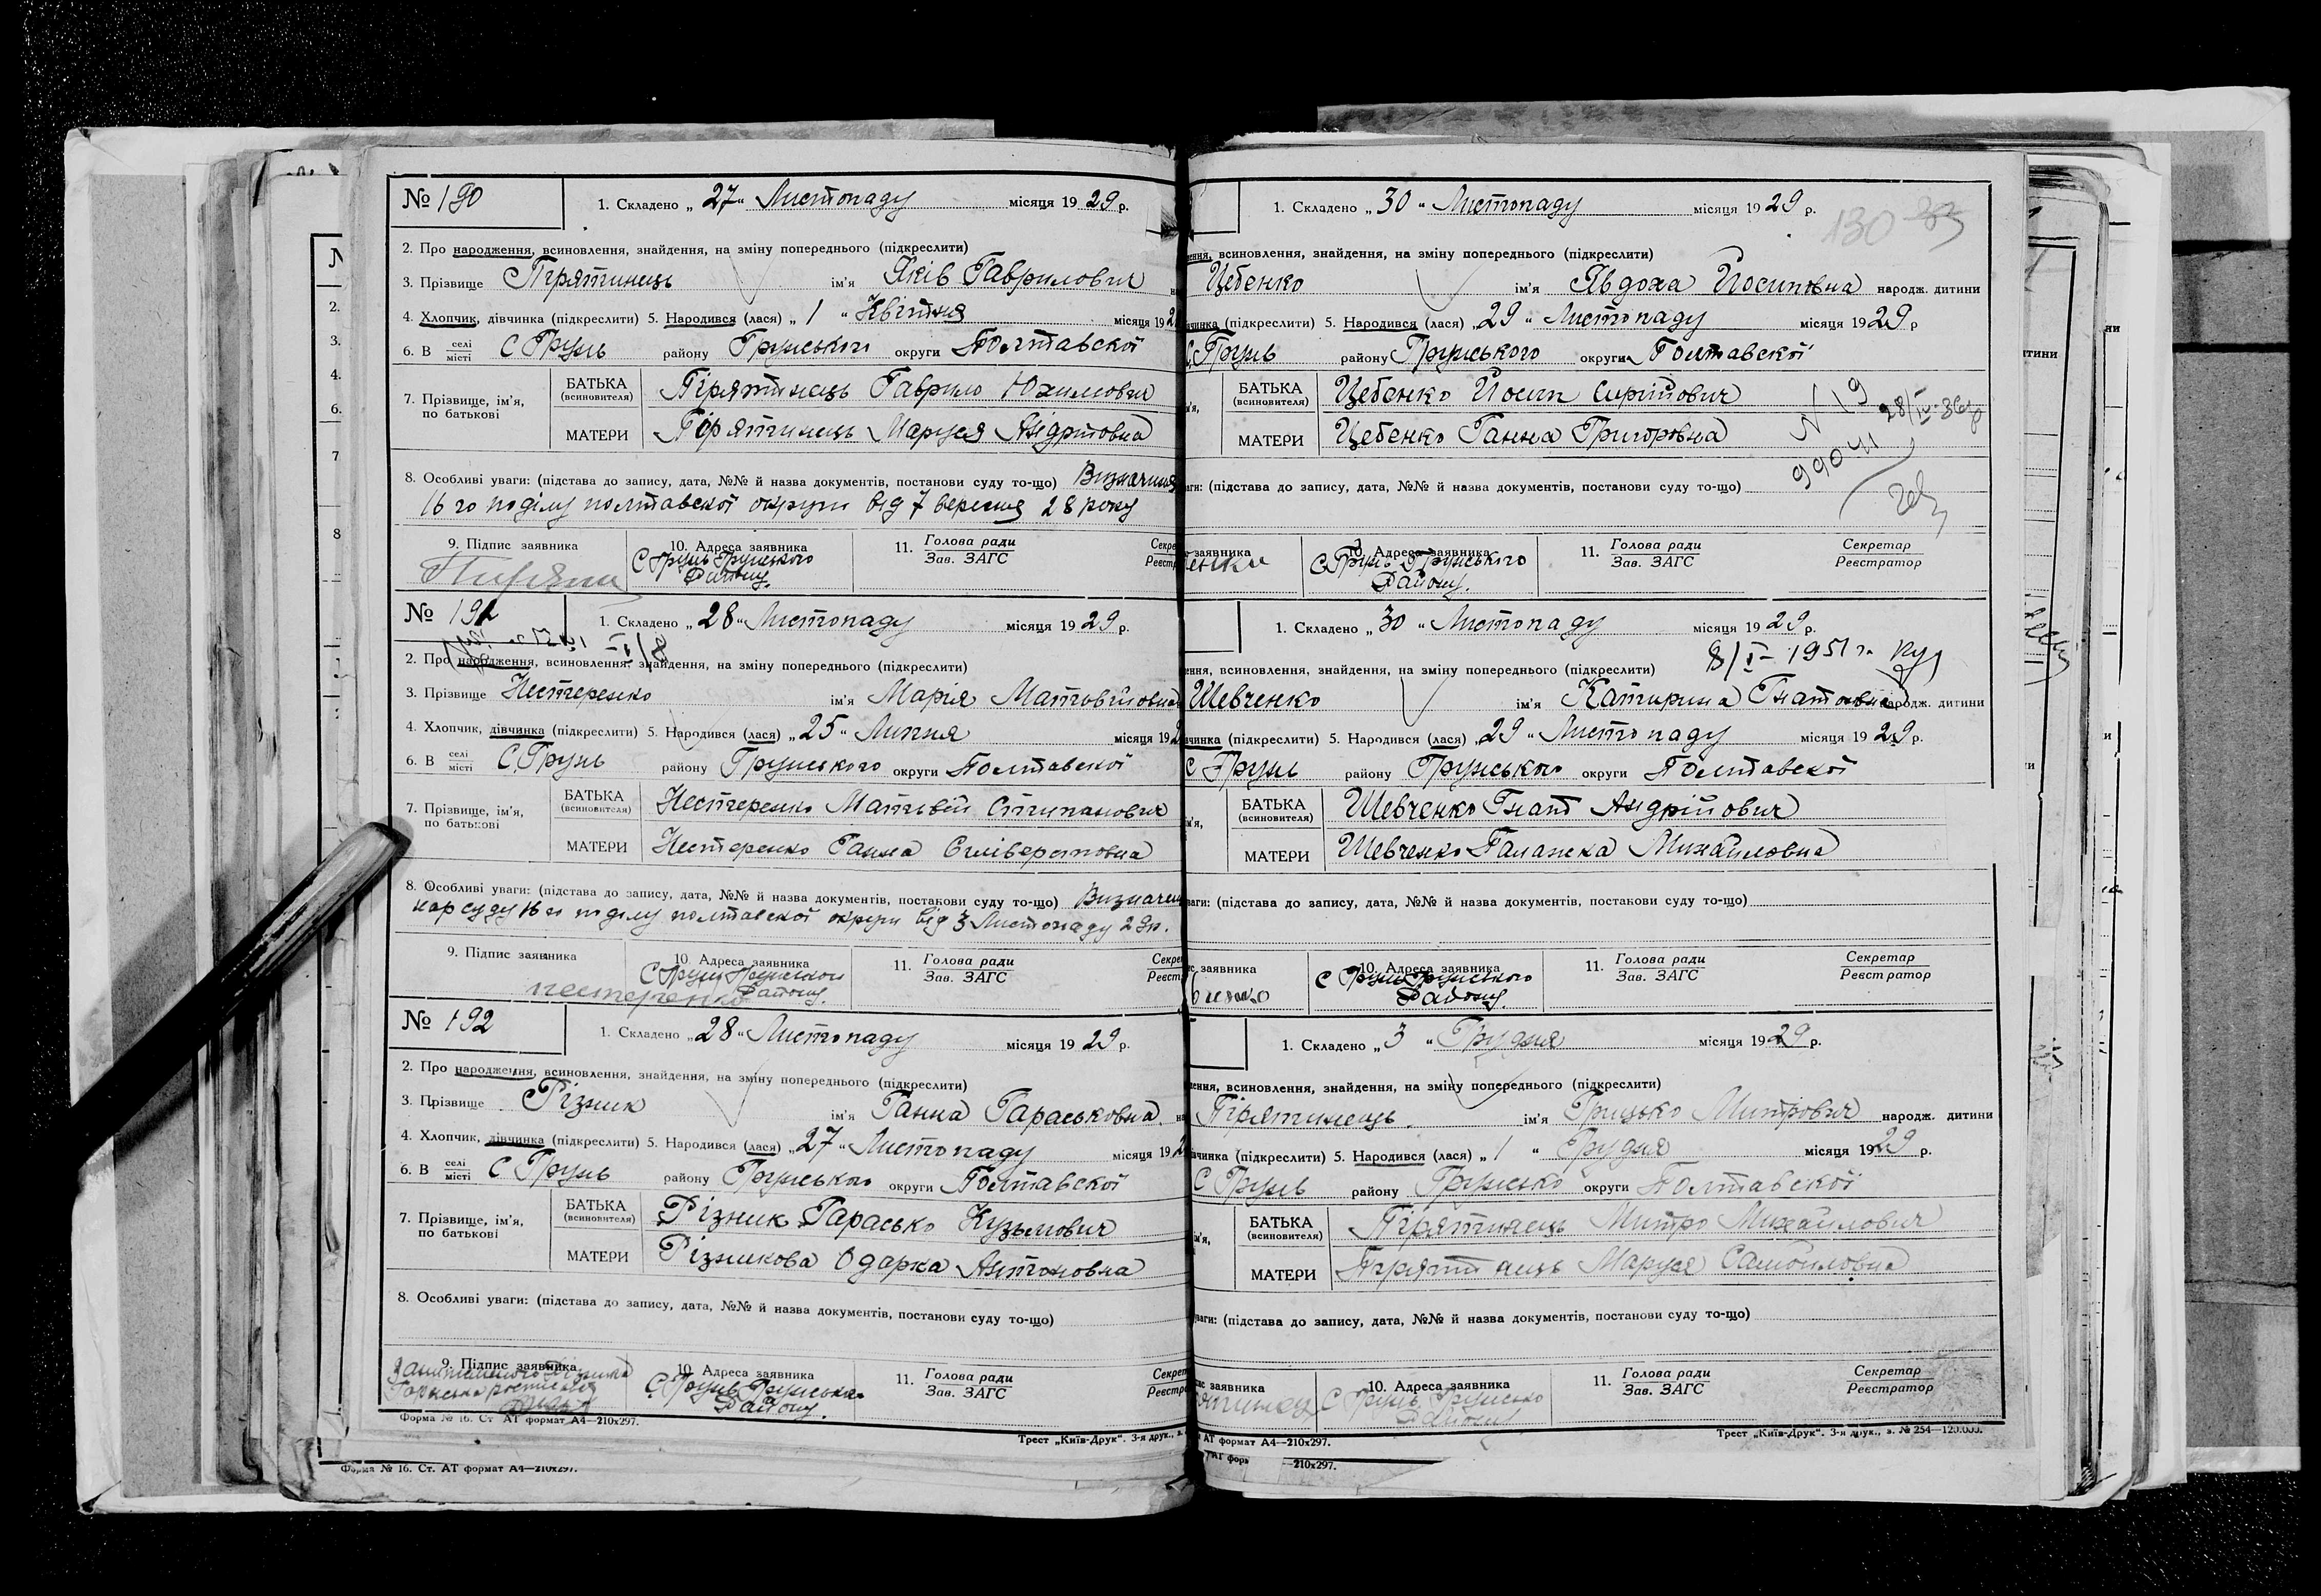 № 190
1. Складено „ 27 “ Листопаду місяця 19 29 р.
2. Про народження, всиновлення, знайдення, на зміну попереднього (підкреслити)
3. Прізвище Пірятинець ім'я Яків Гаврилович
4. Хлопчик, дівчинка (підкреслити) 5. Народився (лася) „ 1 “ Квітня місяця 192
6. В селі місті С Грунь району Грунського округи Полтавскої
7. Прізвище, ім'я, по батькові
БАТЬКА (всиновителя) Пірятинець Гаврило Юхимович
МАТЕРИ Пірятинець Маруся Андріовна
8. Особливі уваги: (підстава до запису, дата, №№ й назва документів, постанови суду то-що) Визначиня
16 го поділу полтавскої округи від 7 вересня 28 року
9. Підпис заявника 10. Адреса заявника 11. Голова ради Зав. ЗАГС
С Грунь Грунського Району.
№ 191
1. Складено „ 28 “ Листопаду місяця 19 29 р.
2. Про народження, всиновлення, знайдення, на зміну попереднього (підкреслити)
3. Прізвище Нестеренко ім'я Марія Матовійовна
4. Хлопчик, дівчинка (підкреслити) 5. Народився (лася) „ 25 “ Липня місяця 192
6. В селі місті С. Грунь району Грунського округи Полтавскої
7. Прізвище, ім'я, по батькові
БАТЬКА (всиновителя) Нестеренко Матьвій Стипанович
МАТЕРИ Нестеренко Ганна Силіверстовна
8. Особливі уваги: (підстава до запису, дата, №№ й назва документів, постанови суду то-що) Визначен
нарсуду 16 го поділу полтавскої округи від 3 Листопаду 29 р.
9. Підпис заявника 10. Адреса заявника 11. Голова ради Зав. ЗАГС
нестеренко С Грунь Грунского Району.
№ 192
1. Складено „ 28 “ Листопаду місяця 19 29 р.
2. Про народження, всиновлення, знайдення, на зміну попереднього (підкреслити)
3. Прізвище Різник ім'я Ганна Гараськовна
4. Хлопчик, дівчинка (підкреслити) 5. Народився (лася) „ 27 “ Листопаду місяця 192
6. В селі місті С. Грунь району Грунського округи Полтавскої
7. Прізвище, ім'я, по батькові
БАТЬКА (всиновителя) Різник Гарасько Кузьмович
МАТЕРИ Різникова Одарка Антоновна
8. Особливі уваги: (підстава до запису, дата, №№ й назва документів, постанови суду то-що)
9. Підпис заявника 10. Адреса заявника 11. Голова ради Зав. ЗАГС
С Грунь Грунська Району.
Форма № 16. Ст АТ формат А4—210х297.
Трест „Київ-Друк“. 3-я друк., з.
Форма № 16. Ст. АТ формат А4—210х297.
1. Складено „ 30 “ Листопаду місяця 19 29 р.
130
ення, всиновлення, знайдення, на зміну попереднього (підкреслити)
Цебенко ім'я Явдоха Йосиповна народж. дитини
вчинка (підкреслити) 5. Народився (лася) „ 29 “ Листопаду місяця 19 29 р
С. Грунь району Грунського округи Полтавскої
БАТЬКА (всиновителя) Цебенко Йосип Сиргійович
МАТЕРИ Цебенко Ганна Григоровна
N 19
28/IV-36р
аги: (підстава до запису, дата, №№ й назва документів, постанови суду то-що)
заявника 10. Адреса заявника 11. Голова ради Зав. ЗАГС Секретар Реєстратор
енко С. Грунь Грунського Району.
1. Складено „ 30 “ Листопаду місяця 19 29 р.
8/I-1951 г.
ення, всиновлення, знайдення, на зміну попереднього (підкреслити)
Шевченко ім'я Катирина Гнатовна народж. дитини
вчинка (підкреслити) 5. Народився (лася) „ 29 “ Листопаду місяця 19 29 р.
С Грунь району Грунського округи Полтавскої
БАТЬКА (всиновителя) Шевченко Гнат Андрійович
МАТЕРИ Шевченко Галажка Михайловна
ваги: (підстава до запису, дата, №№ й назва документів, постанови суду то-що)
с заявника 10. Адреса заявника 11. Голова ради Зав. ЗАГС Секретар Реєстратор
С Грунь Грунського Району.
1. Складено „ 3 “ Грудня місяця 19 29 р.
ення, всиновлення, знайдення, на зміну попереднього (підкреслити)
Пірятинець ім'я Грицько Митрович народж. дитини
вчинка (підкреслити) 5. Народився (лася) „ 1 “ Грудня місяця 19 29 р.
С Грунь району Грунсько округи Полтавскої
БАТЬКА (всиновителя) Пірятинець Митро Михайлович
МАТЕРИ Пірятинець Маруся Самойловна
уваги: (підстава до запису, дата, №№ й назва документів, постанови суду то-що)
ис заявника 10. Адреса заявника 11. Голова ради Зав. ЗАГС Секретар Реєстратор
С Грунь Грунсько Району
АТ формат А4—210х297.
Трест „Київ-Друк“. 3-я друк., з. № 254—120.000.
—210х297.